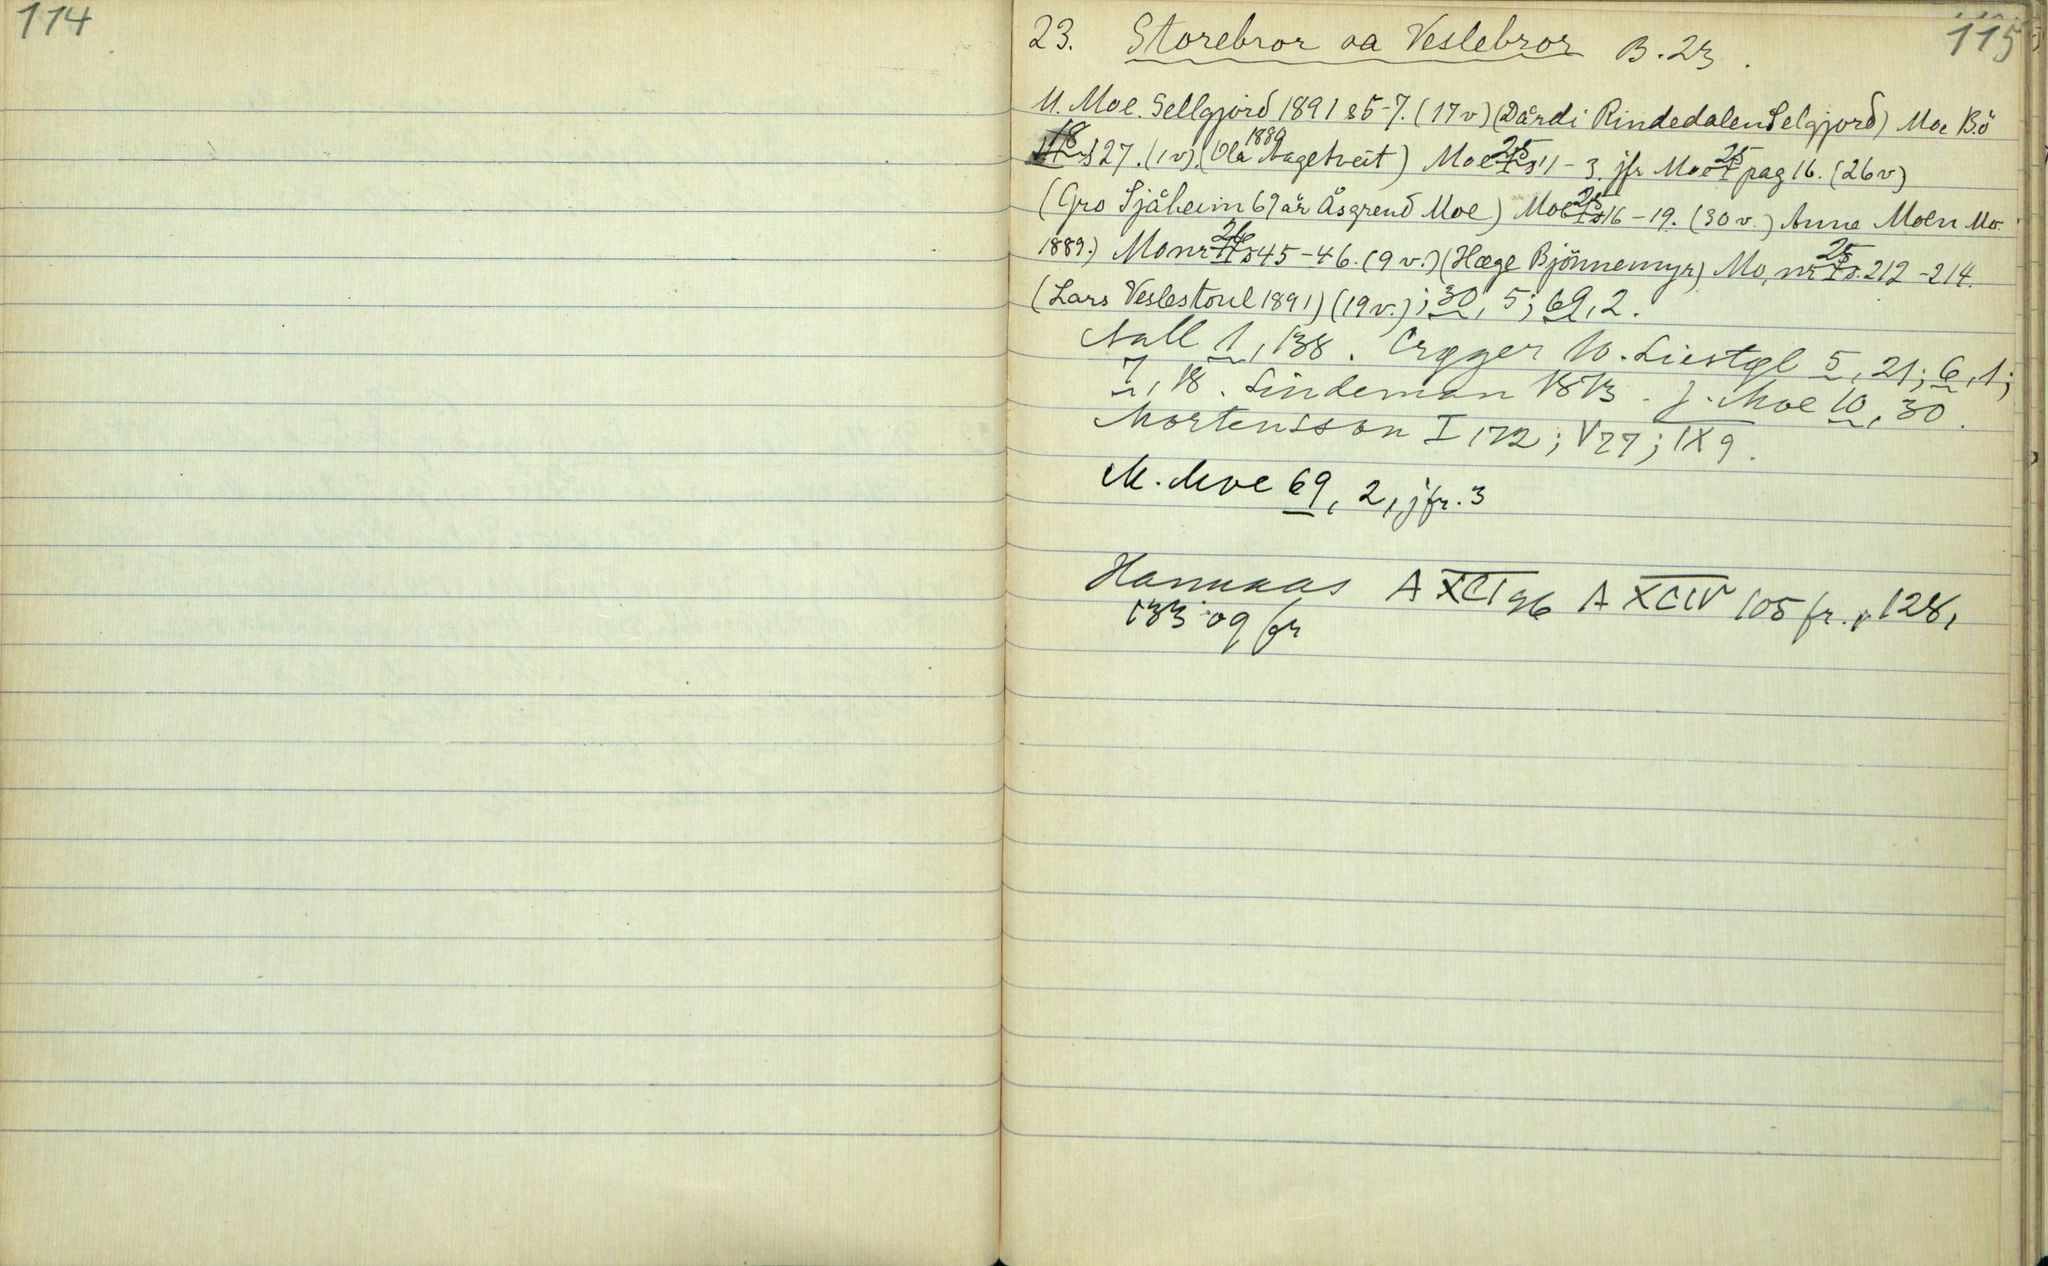 114
115
23. Storebror oa Veslebror B.23.
M. Moe. Sellgjord 1891 s 5-7. (17 v) (Dårdi Rindedalen Selgjord) Moe Bö
18 s 27. (1 v). (Ola Aagetveit 1889) Moe 25 I s 11-3. jfr Moe 25 I pag 16. (26 v)
(Gro Sjåheim 69 år Åsgrend Moe) Moe 25 I s 16-19. (30 v.) Anne Moen Mo.
1889.) Mo nr 26 II s 45-46. (9 v.) (Hæge Bjönnemyr) Mo, nr 25 I s. 212-214.
(Lars Veslestoul 1891) (19 v.); 30, 5; 69, 2.
1, 138. Crøger 10. Liestøl 5, 21; 6, 1;
7, 18. Lindeman 1873. J. Moe 10, 30.
Mortensson I 172; V 77; IX 9.
M. Moe 69, 2, jfr. 3
Hannaas A XCI 96 A XCIV 105 fr., 128,
133 og fr